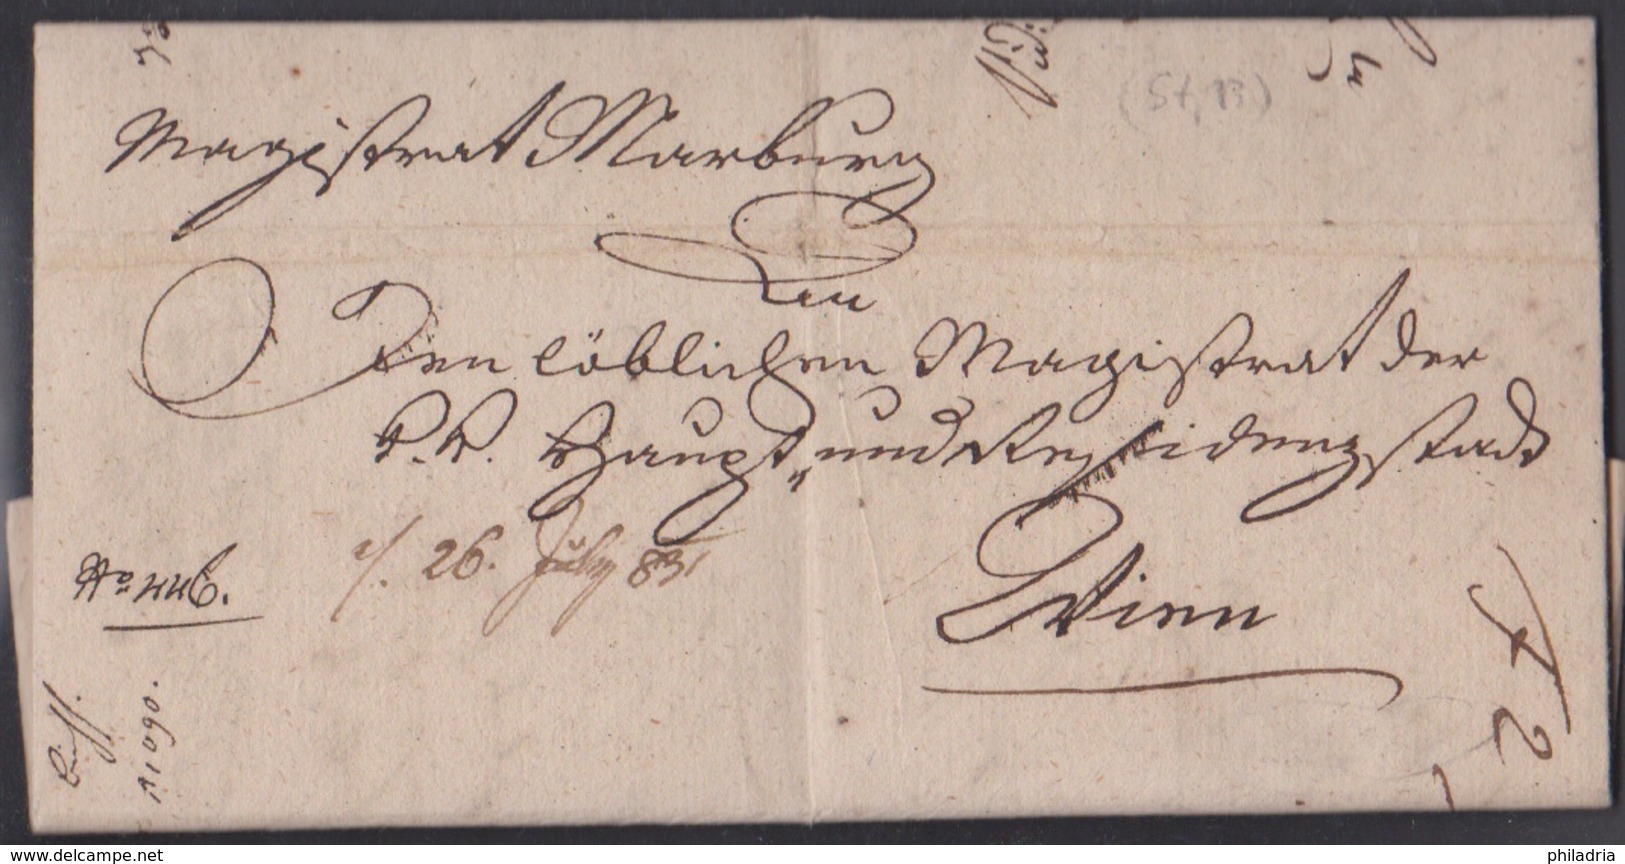 (St, 13)
Magistrat Marburg
An
Den löblichen Magistrat der
K. K. Haupt„ und Residenzstadt
Wien
26. July 831
No 446.
N 1090.
2
delcampe.net
philadria